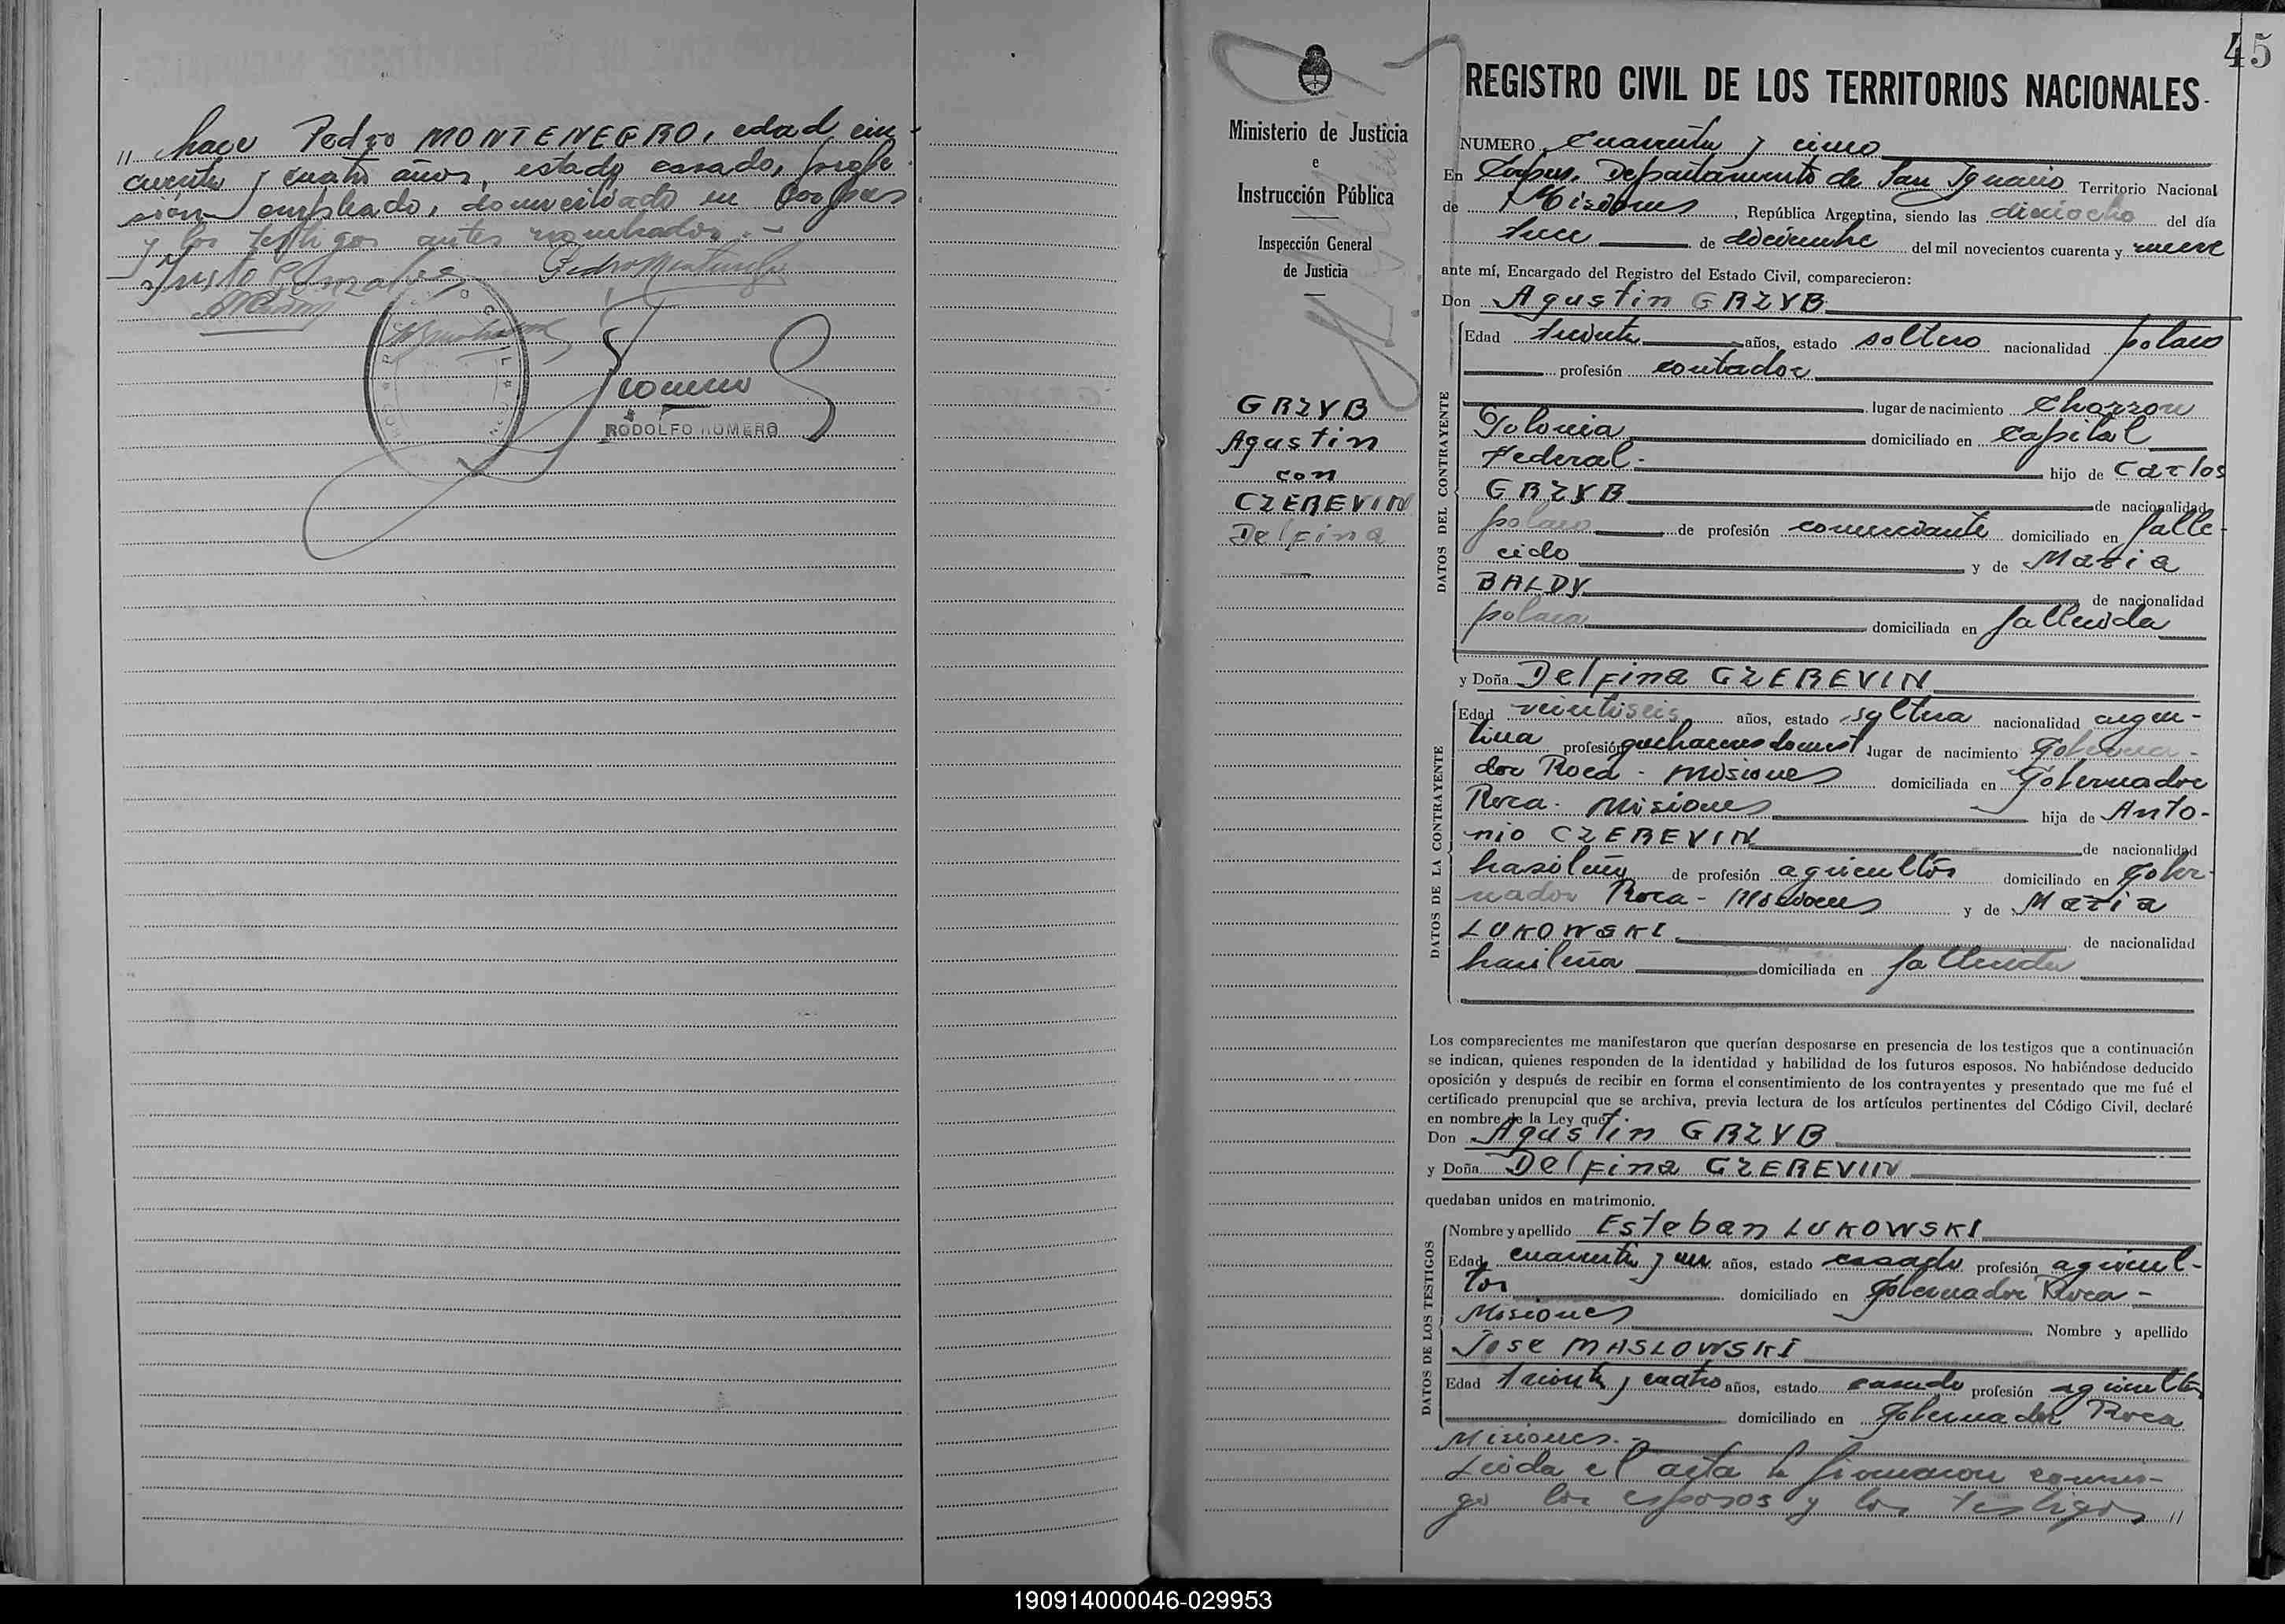 " hace Pedro MONTENEGRO, edad cin-
cuenta y cuatro años, estado casado, profe
sión empleado, domiciliado en Corpus
y los testigos antes nombrados.-
Justo Gonzalez
Romero
RODOLFO ROMERO
45
Ministerio de Justicia
e
Instrucción Pública
Inspección General
de Justicia
GRZYB
Agustin
con
CZEREVIN
Delfina
REGISTRO CIVIL DE LOS TERRITORIOS NACIONALES
NUMERO Cuarenta y cinco
En Corpus, Departamento de San Ignacio Territorio Nacional
de Misiones, República Argentina, siendo las dieciocho del día
trece de diciembre del mil novecientos cuarenta y nueve
ante mí, Encargado del Registro del Estado Civil, comparecieron:
Don Agustin GRZYB
DATOS DEL CONTRAYENTE
Edad treinta años, estado soltero nacionalidad polaco
profesión contador
lugar de nacimiento Chorzow
Polonia domiciliado en Capital
Federal.- hijo de Carlos
GRZYB de nacionalidad
polaco de profesión comerciante domiciliado en falle-
cido y de Maria
BALDY de nacionalidad
polaca domiciliada en fallecida
y Doña Delfina CZEREVIN
DATOS DE LA CONTRAYENTE
Edad veintiseis años, estado soltera nacionalidad argen-
tina profesión quehaceres domest lugar de nacimiento Goberna-
dor Roca - Misiones domiciliada en Gobernador
Roca - Misiones hija de Anto-
nio CZEREVIN de nacionalidad
brasileña de profesión agricultor domiciliado en Gober-
nador Roca - Misiones y de Maria
LUKOWSKI de nacionalidad
brasileña domiciliada en fallecida
Los comparecientes me manifestaron que querían desposarse en presencia de los testigos que a continuación
se indican, quienes responden de la identidad y habilidad de los futuros esposos. No habiéndose deducido
oposición y después de recibir en forma el consentimiento de los contrayentes y presentado que me fué el
certificado prenupcial que se archiva, previa lectura de los artículos pertinentes del Código Civil, declaré
en nombre de la Ley que:
Don Agustin GRZYB
y Doña Delfina CZEREVIN
quedaban unidos en matrimonio.
DATOS DE LOS TESTIGOS
Nombre y apellido Esteban LUKOWSKI
Edad cuarenta y un años, estado casado profesión agricul-
tor domiciliado en Gobernador Roca -
Misiones Nombre y apellido
Jose MASLOWSKI
Edad treinta y cuatro años, estado casado profesión agricultor
domiciliado en Gobernador Roca
Misiones.-
Leida el acta la firmaron conmi-
go los esposos y los testigos "
190914000046-029953